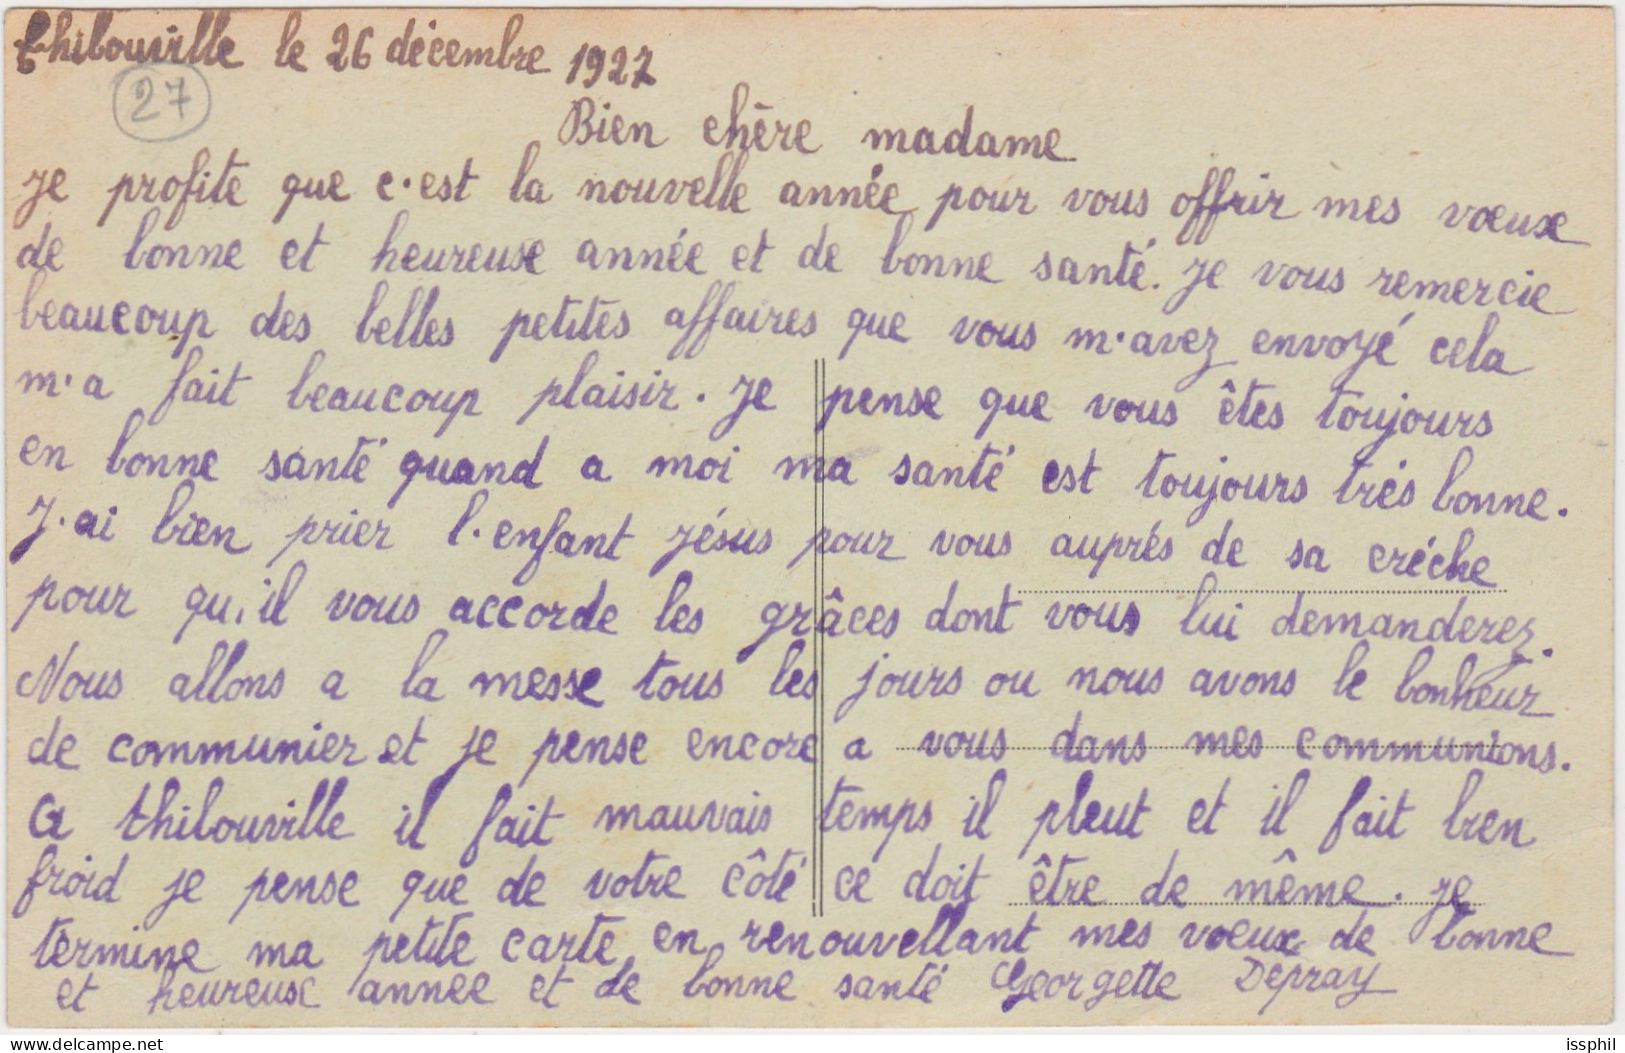 thibouville le 26 décembre 1927
27
Bien chère madame
Je profite que c'est la nouvelle année pour vous offrir mes vœuxe
de bonne et heureuse année et de bonne santé. Je vous remercie
beaucoup des belles petites affaires que vous m'avez envoyé cela
m'a fait beaucoup plaisir. Je pense que vous êtes toujours
en bonne santé quand a moi ma santé est toujours trés bonne.
J'ai bien prier l'enfant Jésus pour vous auprés de sa créche
pour qu'il vous accorde les grâces dont vous lui demanderez.
Nous allons a la messe tous les jours ou nous avons le bonheur
de communier et je pense encore a vous dans mes communions.
A thibouville il fait mauvais temps il pleut et il fait bien
froid je pense que de votre côté ce doit être de même. Je
termine ma petite carte en renouvellant mes voeux de bonne
et heureuse année et de bonne santé Georgette Depray
issphil